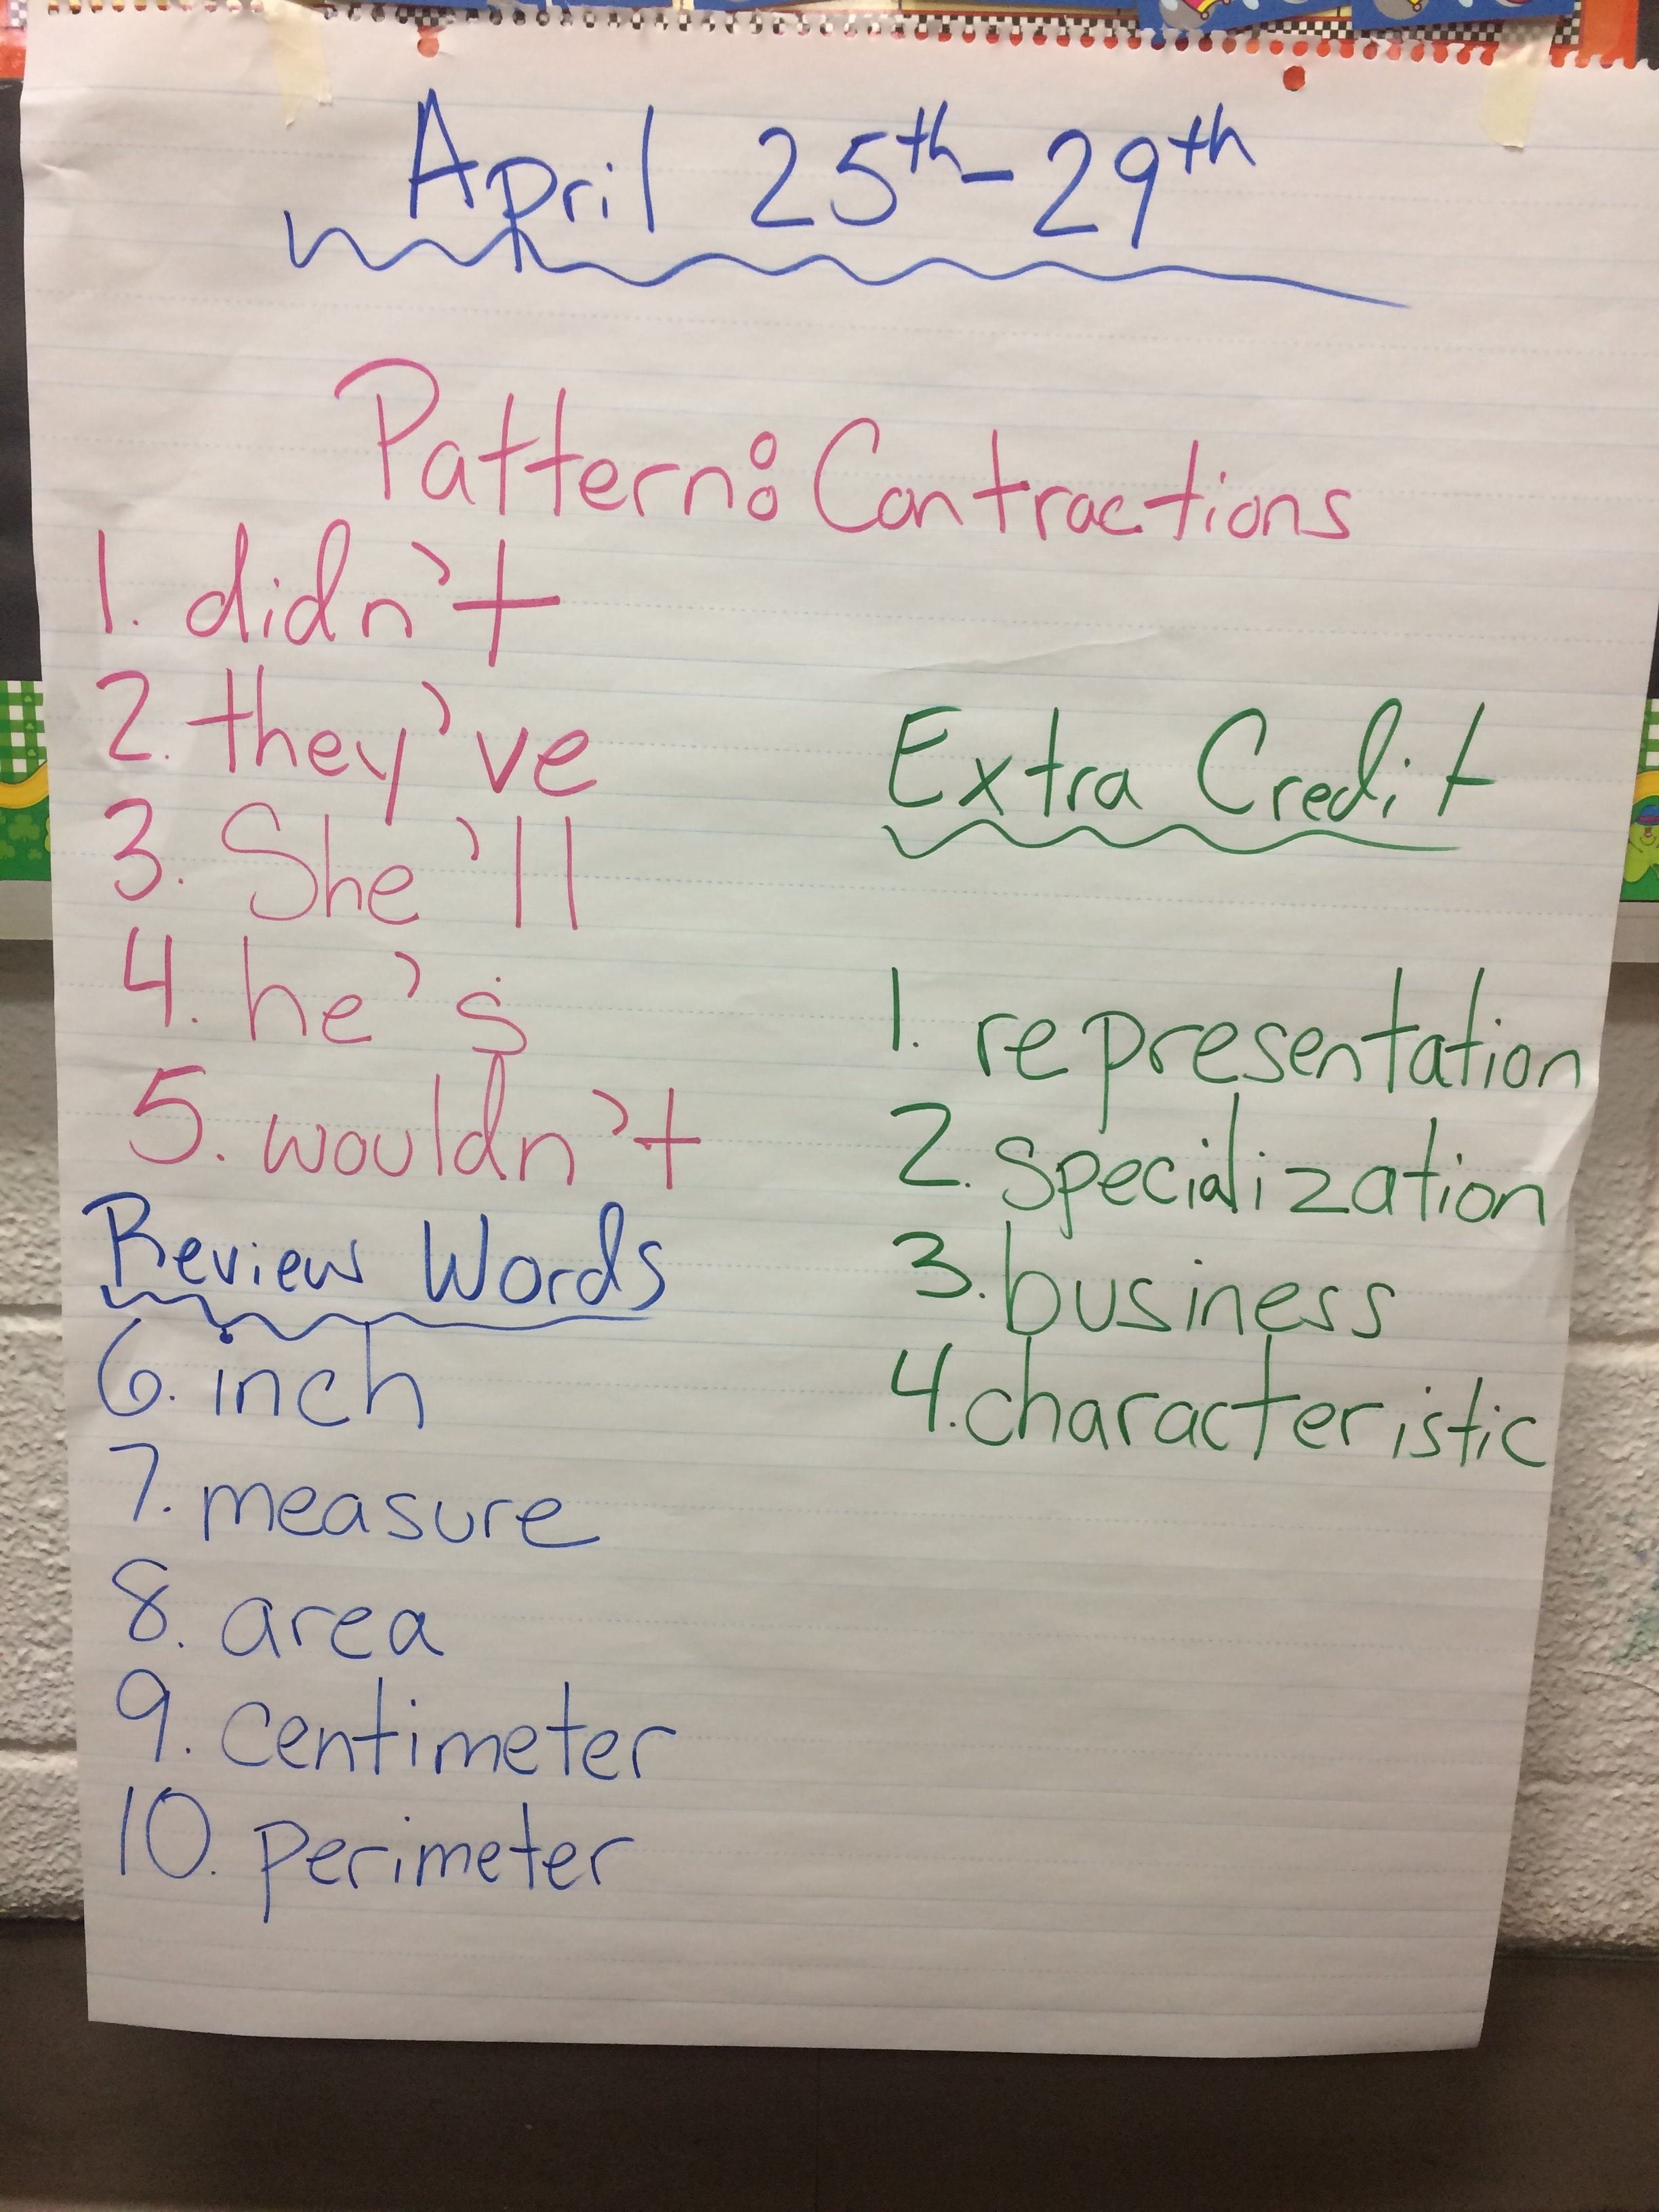 April 25th-29th
Pattern: Contractions
1. didn't
2. they've
3. She'll
4. he's
5. wouldn't
Review Words
6. inch
7. measure
8. area
9. centimeter
10. perimeter
Extra Credit
1. representation
2. specialization
3. business
4. characteristic